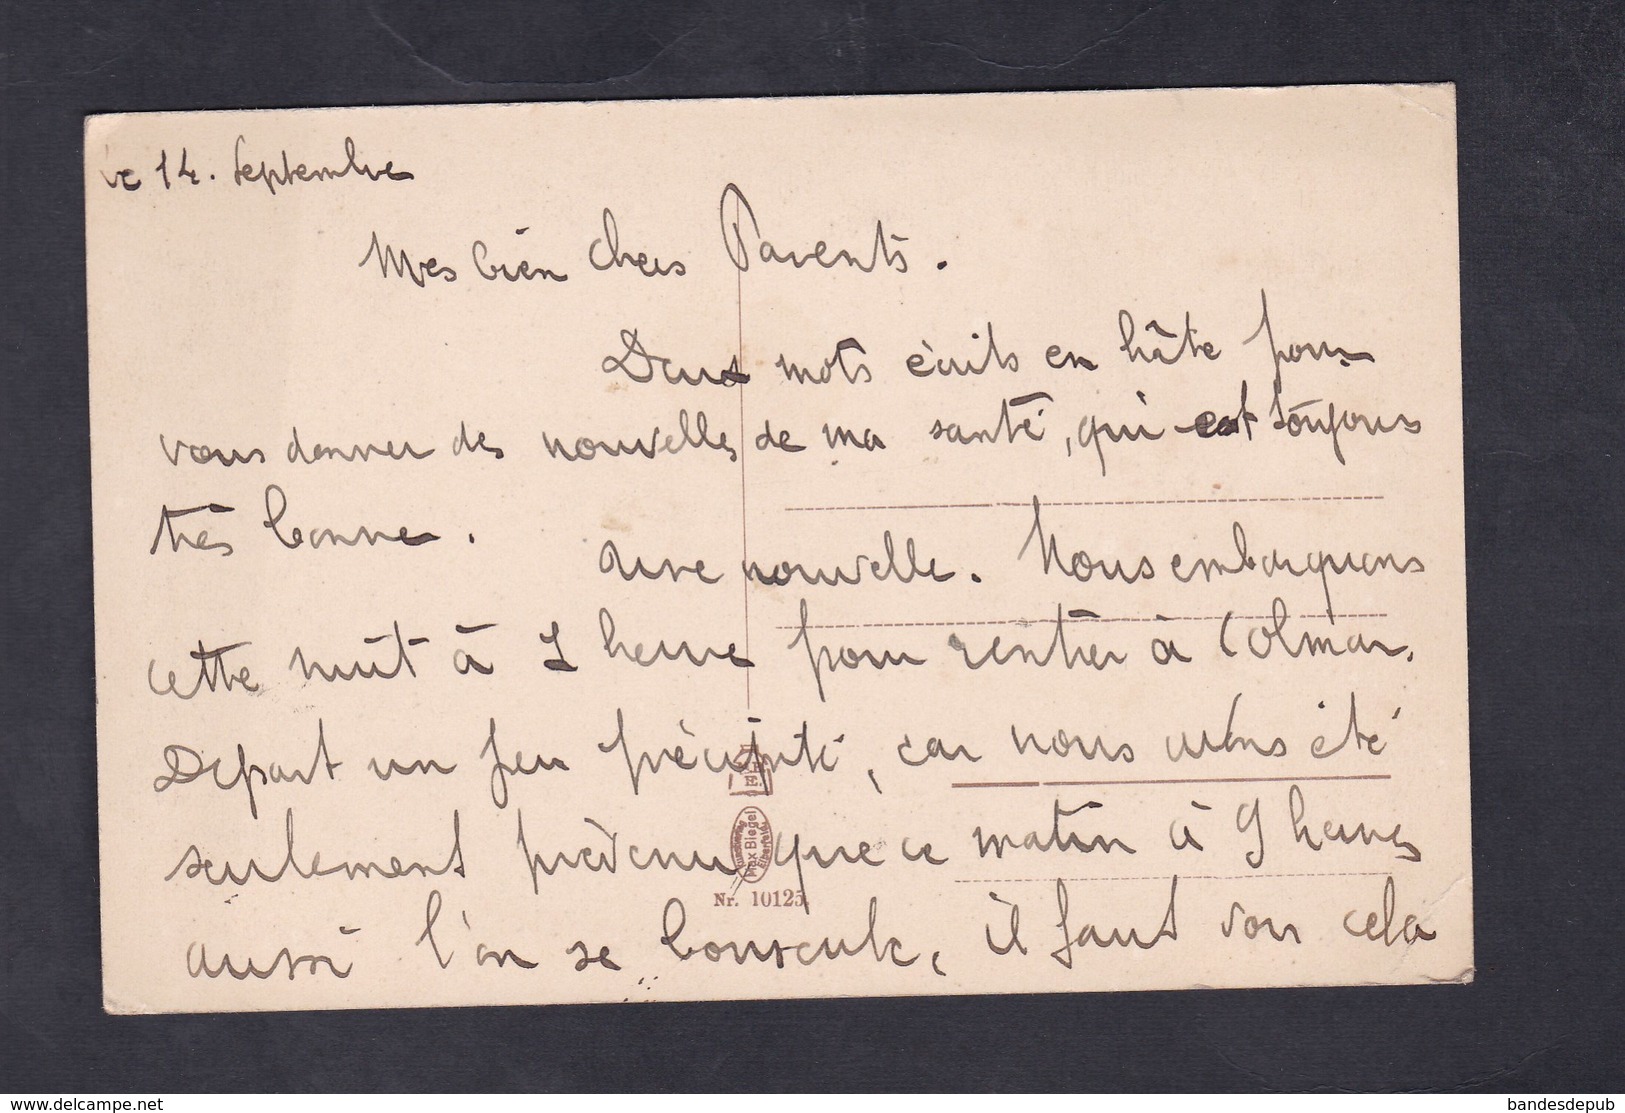 14. Septembre
Mes bien chers Parents.
Deux mots écrits en hâte pour
vous donner des nouvelles de ma santé, qui est toujours
très bonne.
Une nouvelle. Nous embarquons
cette nuit à 1 heure pour rentrer à Colmar.
Départ un peu précipité, car nous avons été
seulement prévenu que ce matin à 9 heures
aussi l'on se bouscule, il faut voir cela
Max Biegel
Elberfeld
Nr. 10125.
delcampe.net
bandesdepub